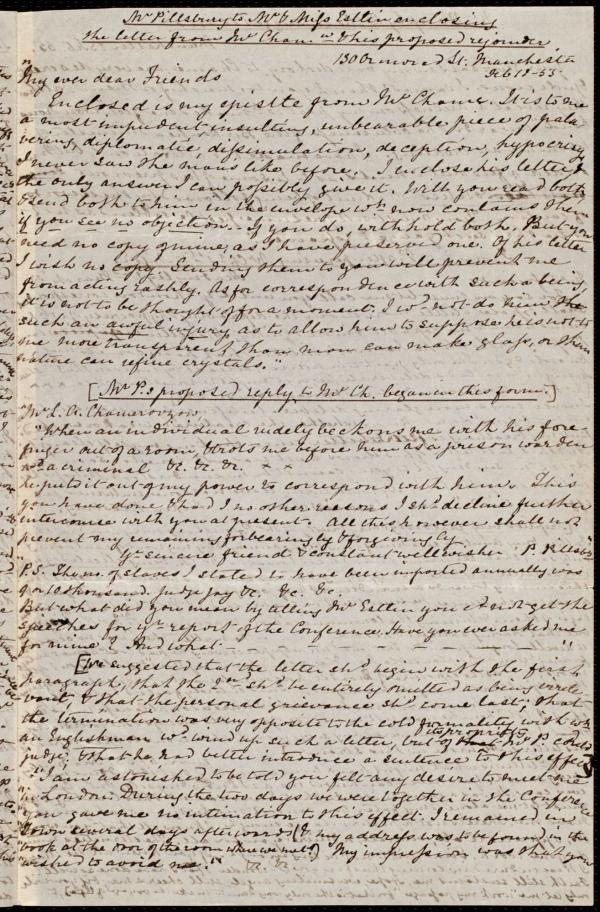 Mr Pillsbury to Mr & Miss Estlin enclosing
the letter from Mr Cham. wh. & his proposed rejoinder.
130 Ormond St. Manchester
Feb 18 - 53.
My ever dear Friends
Enclosed is my epistle from Mr Cham. It is to me
a most impudent insulting, unbearable piece of pala
vering, diplomatic, dissimulation, deception, hypocrisy,
I never saw the man's like before. I enclose his letter &
the only answer I can possibly give it. Will you read both
& send both to him in the envelope wh. now contains them
if you see no objection. If you do, withhold both. But you
need no copy of mine, as I have preserved one. Of his letter
I wish no copy. Sending them to you will prevent me
from acting rashly. As for correspondence with such a being,
it is not to be thought of for a moment. I wd. not do him the
such an awful injury, as to allow him to suppose he is not to
me more transparent than man can make glass, or than
nature can refine crystals."
[Mr P.s proposed reply to Mr Ch. began in this form.]
"Mr L. A. Chamerovzow,
"When an individual rudely beckons me with his fore-
finger out of a room, & trots me before him as a prison warden
wd. a criminal &c. &c. &c. × ×
he puts it out of my power to correspond with him. This
you have done & had I no other reasons I shd. decline further
intercourse with you at present. All this however shall not
prevent my remaining forbearingly & forgivingly
Yr sincere friend & constant wellwisher P. Pillsbury
P.S. The no. of slaves I stated to have been imported annually was
thousand. Judge Jay &c. &c. &c.
But what did you mean by telling Mr Estlin you cd. not get the
speeches for yr. report of the Conference. Have you ever asked me
for mine? And what - - - - - - - - - "
[We suggested that the letter shd. begin with the first
paragraph, that the 2nd. shd. be entirely omitted as being irrele
vant, & that the personal grievance shd. come last; that
the termination was very opposite to the cold formality with wh.
an Englishman wd. wind up such a letter, but of its propriety Mr P. could
judge, & that he had better introduce a sentence to this effect
"I am astonished to be told you felt any desire to meet me
in London. During the two days we were together in the Conference
you gave me no intimation to this effect. I remained in
town several days afterwards (& my address was to be found in the
book at the door of the room where we met.) My impression was that you
wished to avoid me." &c. &c.